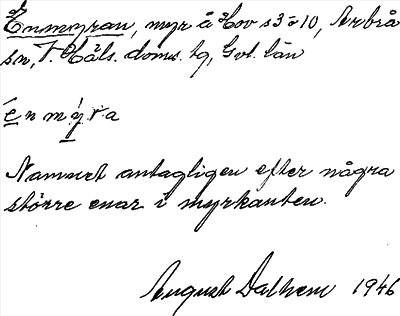 Enmyran, myr å Hov s3 o 10, Arbrå
sn, V. Häls. doms. hg, Gvl. län
é n m ý̱ r a
Namnet antagligen efter några
större enar i myrkanten.
August Dalhem 1946